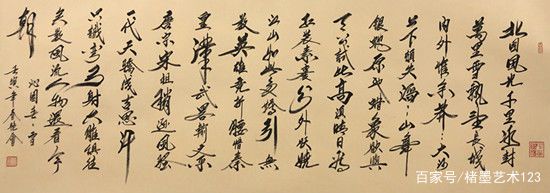 北国風光千里冰封
萬里雪飘望長城
内外惟余莽莽大河
上下顿失滔滔山舞
銀蛇原驰蜡象欲與
天公試比高須晴日看
红装素裹分外妖娆
江山如此多娇引無
数英雄竞折腰惜秦
皇漢武略输文采
唐宗宋祖稍逊風骚
一代天骄成吉思汗
只識弯弓射大雕俱往
矣数風流人物還看今
朝
沁园春 雪
百家号/楮墨艺术123